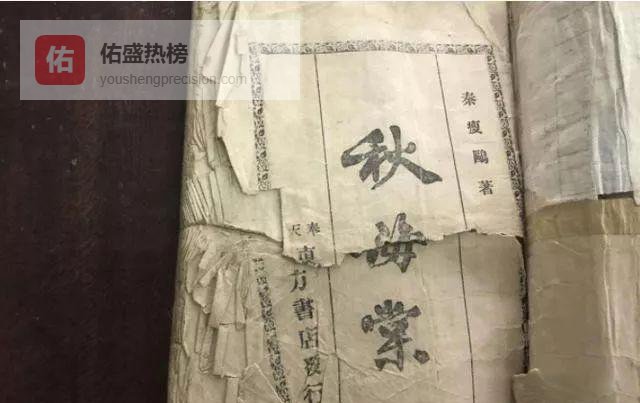 佑
佑盛热榜
youshengprecision.com
秦瘦鷗著
秋海棠
奉天
東方書店發行